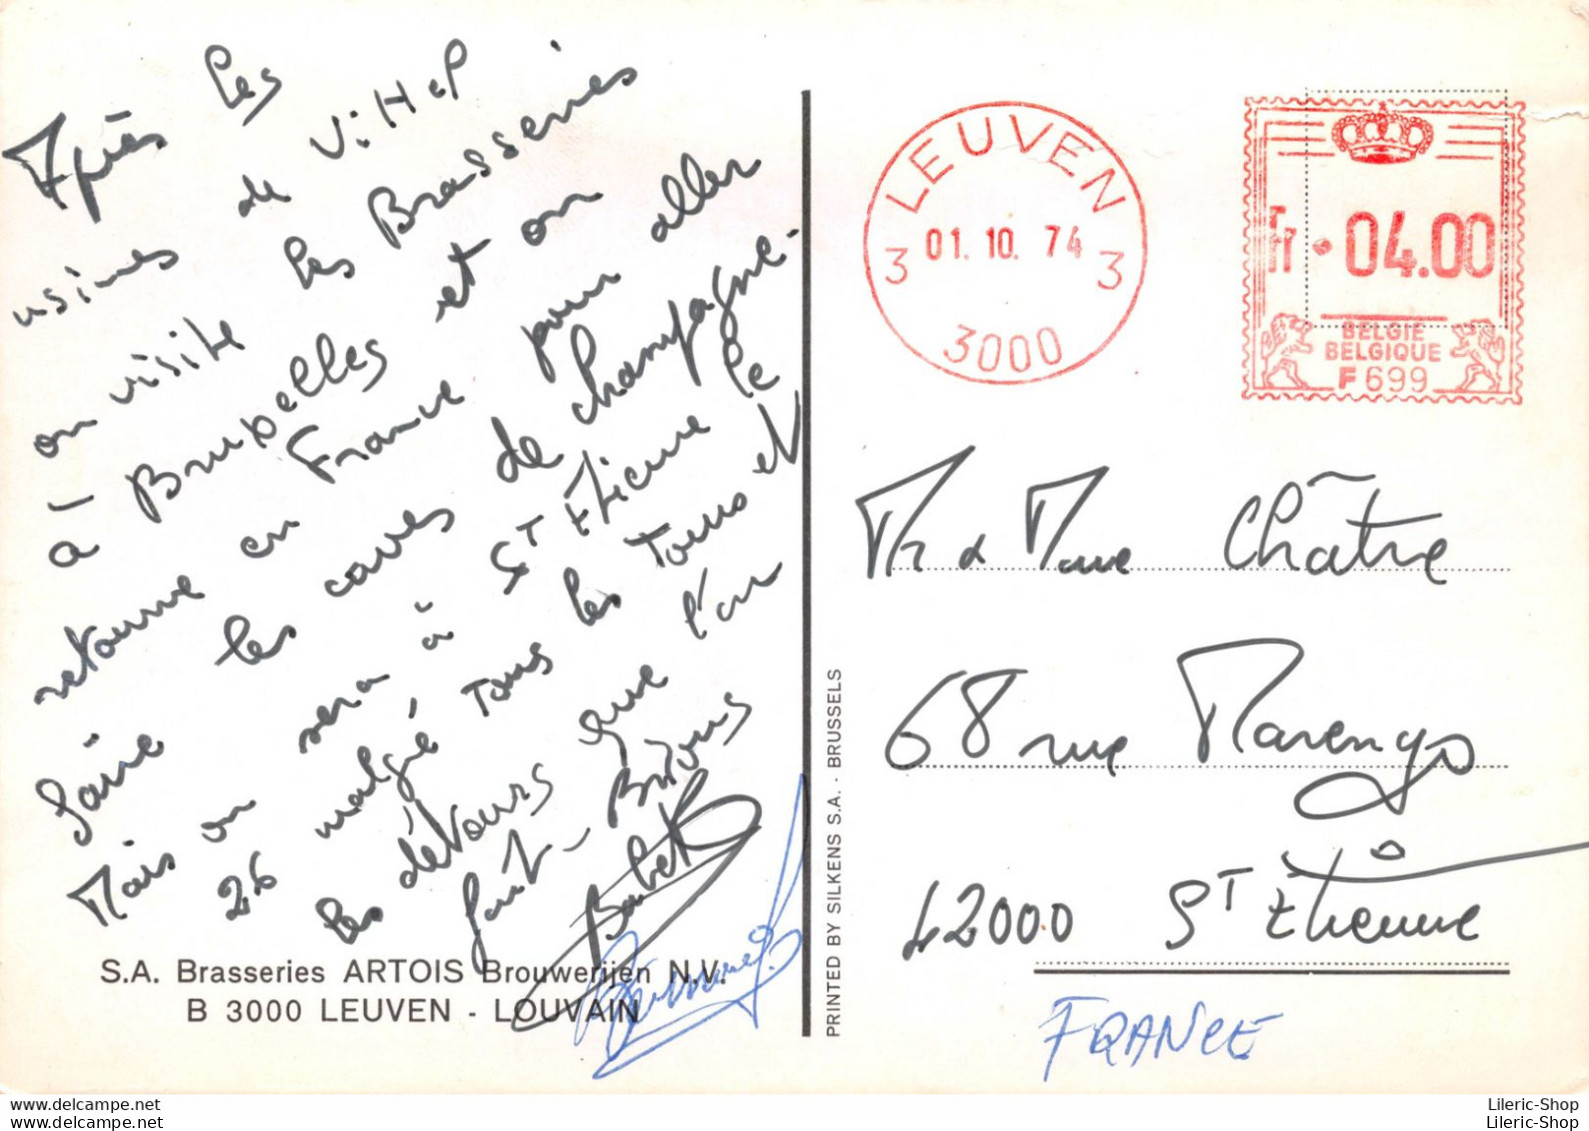 Après les
usines de ViHel
on visite les Brasseries
à Bruxelles et on
retourne en France pour aller
faire les caves de champagne.
Mais on sera à St Etienne le
26 malgré tous les Tours et
les détours que l'on
fait - Bisous
Babeth
S.A. Brasseries ARTOIS Brouwerijen N.V.
B 3000 LEUVEN - LOUVAIN
PRINTED BY SILKENS S.A. - BRUSSELS
LEUVEN
3 01.10.74 3
3000
04.00
BELGIE
BELGIQUE
F 699
Mr & Mme Châtre
68 rue Marengo
42000 St Etienne
FRANCE
Lileric-Shop
Lileric-Shop
www.delcampe.net
www.delcampe.net